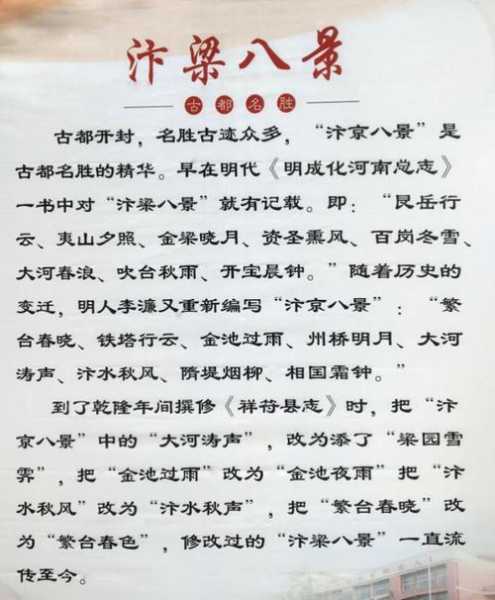 汴梁八景
古都名胜
古都开封，名胜古迹众多，“汴京八景”是
古都名胜的精华。早在明代《明成化河南总志》
一书中对“汴梁八景”就有记载。即：“艮岳行
云、夷山夕照、金梁晓月、资圣熏风、百岗冬雪、
大河春浪、吹台秋雨、开宝晨钟。”随着历史的
变迁，明人李濂又重新编写“汴京八景”：“繁
台春晓、铁塔行云、金池过雨、州桥明月、大河
涛声、汴水秋风、隋堤烟柳、相国霜钟。”
到了乾隆年间撰修《祥符县志》时，把“汴
京八景”中的“大河涛声”，改为添了“梁园雪
霁”，把“金池过雨”改为“金池夜雨”把“汴
水秋风”改为“汴水秋声”，把“繁台春晓”改
为“繁台春色”，修改过的“汴梁八景”一直流
传至今。